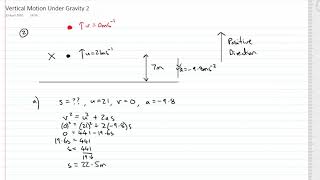 Vertical Motion Under Gravity 2
② ↑ v = 0ms⁻¹
↑ u = 21ms⁻¹
Positive
Direction
7m
a = -9.8ms⁻²
a) s = ??, u = 21, v = 0, a = -9.8
v² = u² + 2as
(0)² = (21)² + 2(-9.8)s
0 = 441 - 19.6s
19.6s = 441
s = 441
19.6
s = 22.5m